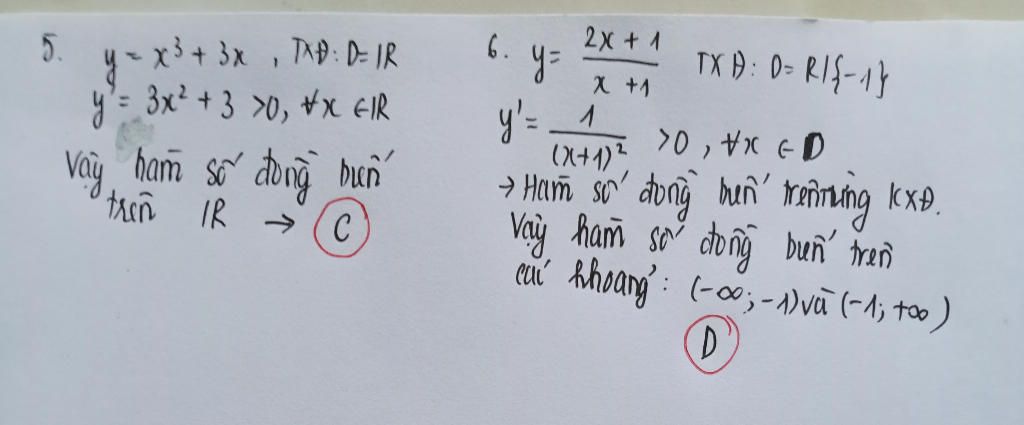 5. y = x³ + 3x , TXĐ: D = ℝ
y' = 3x² + 3 >0, ∀x ∈ ℝ
Vậy hàm số đồng biến
trên ℝ → C
6. y = (2x + 1)/(x + 1) TXĐ: D = R\{-1}
y' = 1/(x+1)² >0, ∀x ∈ D
→ Hàm số đồng biến trên từng KXĐ.
Vậy hàm số đồng biến trên
các khoảng: (-∞; -1) và (-1; +∞)
D